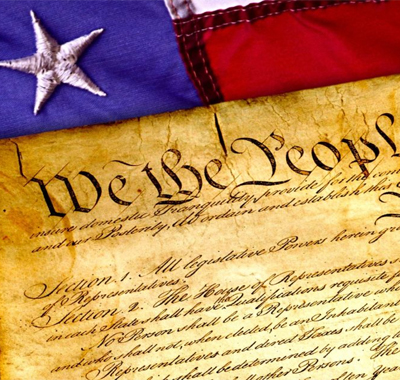 We the People
insure domestic Tranquility, provide for the com
and our Posterity, do ordain and establish this
Section. 1. All legislative Powers herein gr
of Representatives.
Section. 2. The House of Representatives
in each State shall have Qualifications requisite f
No Person shall be a Representative who
and who shall not, when elected, be an Inhabitant
Representatives and direct Taxes shall be
shall be determined by adding
all other Persons. The